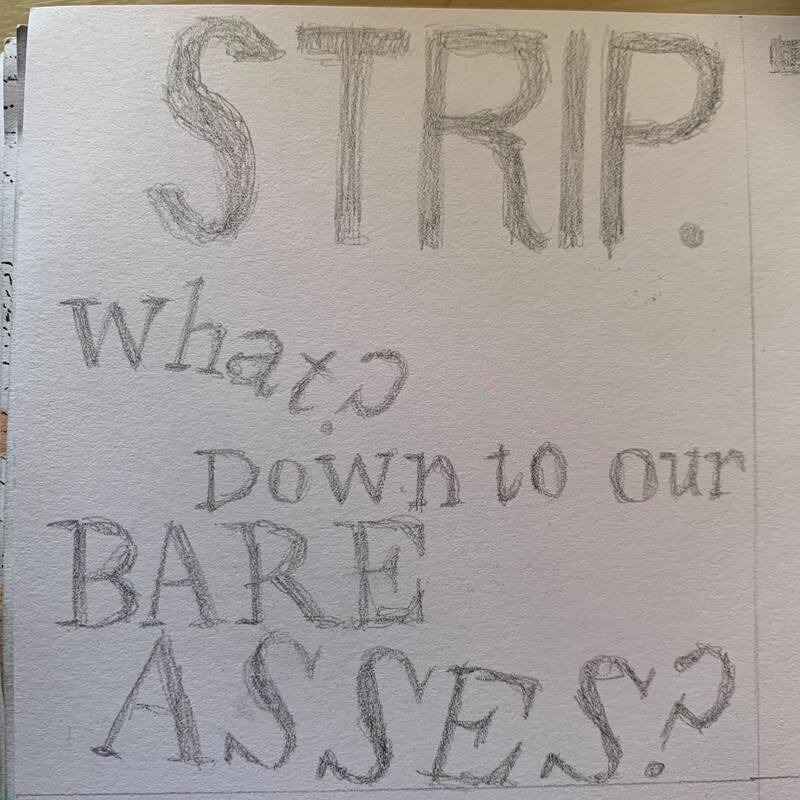 STRIP.
What?
Down to our
BARE
ASSES?